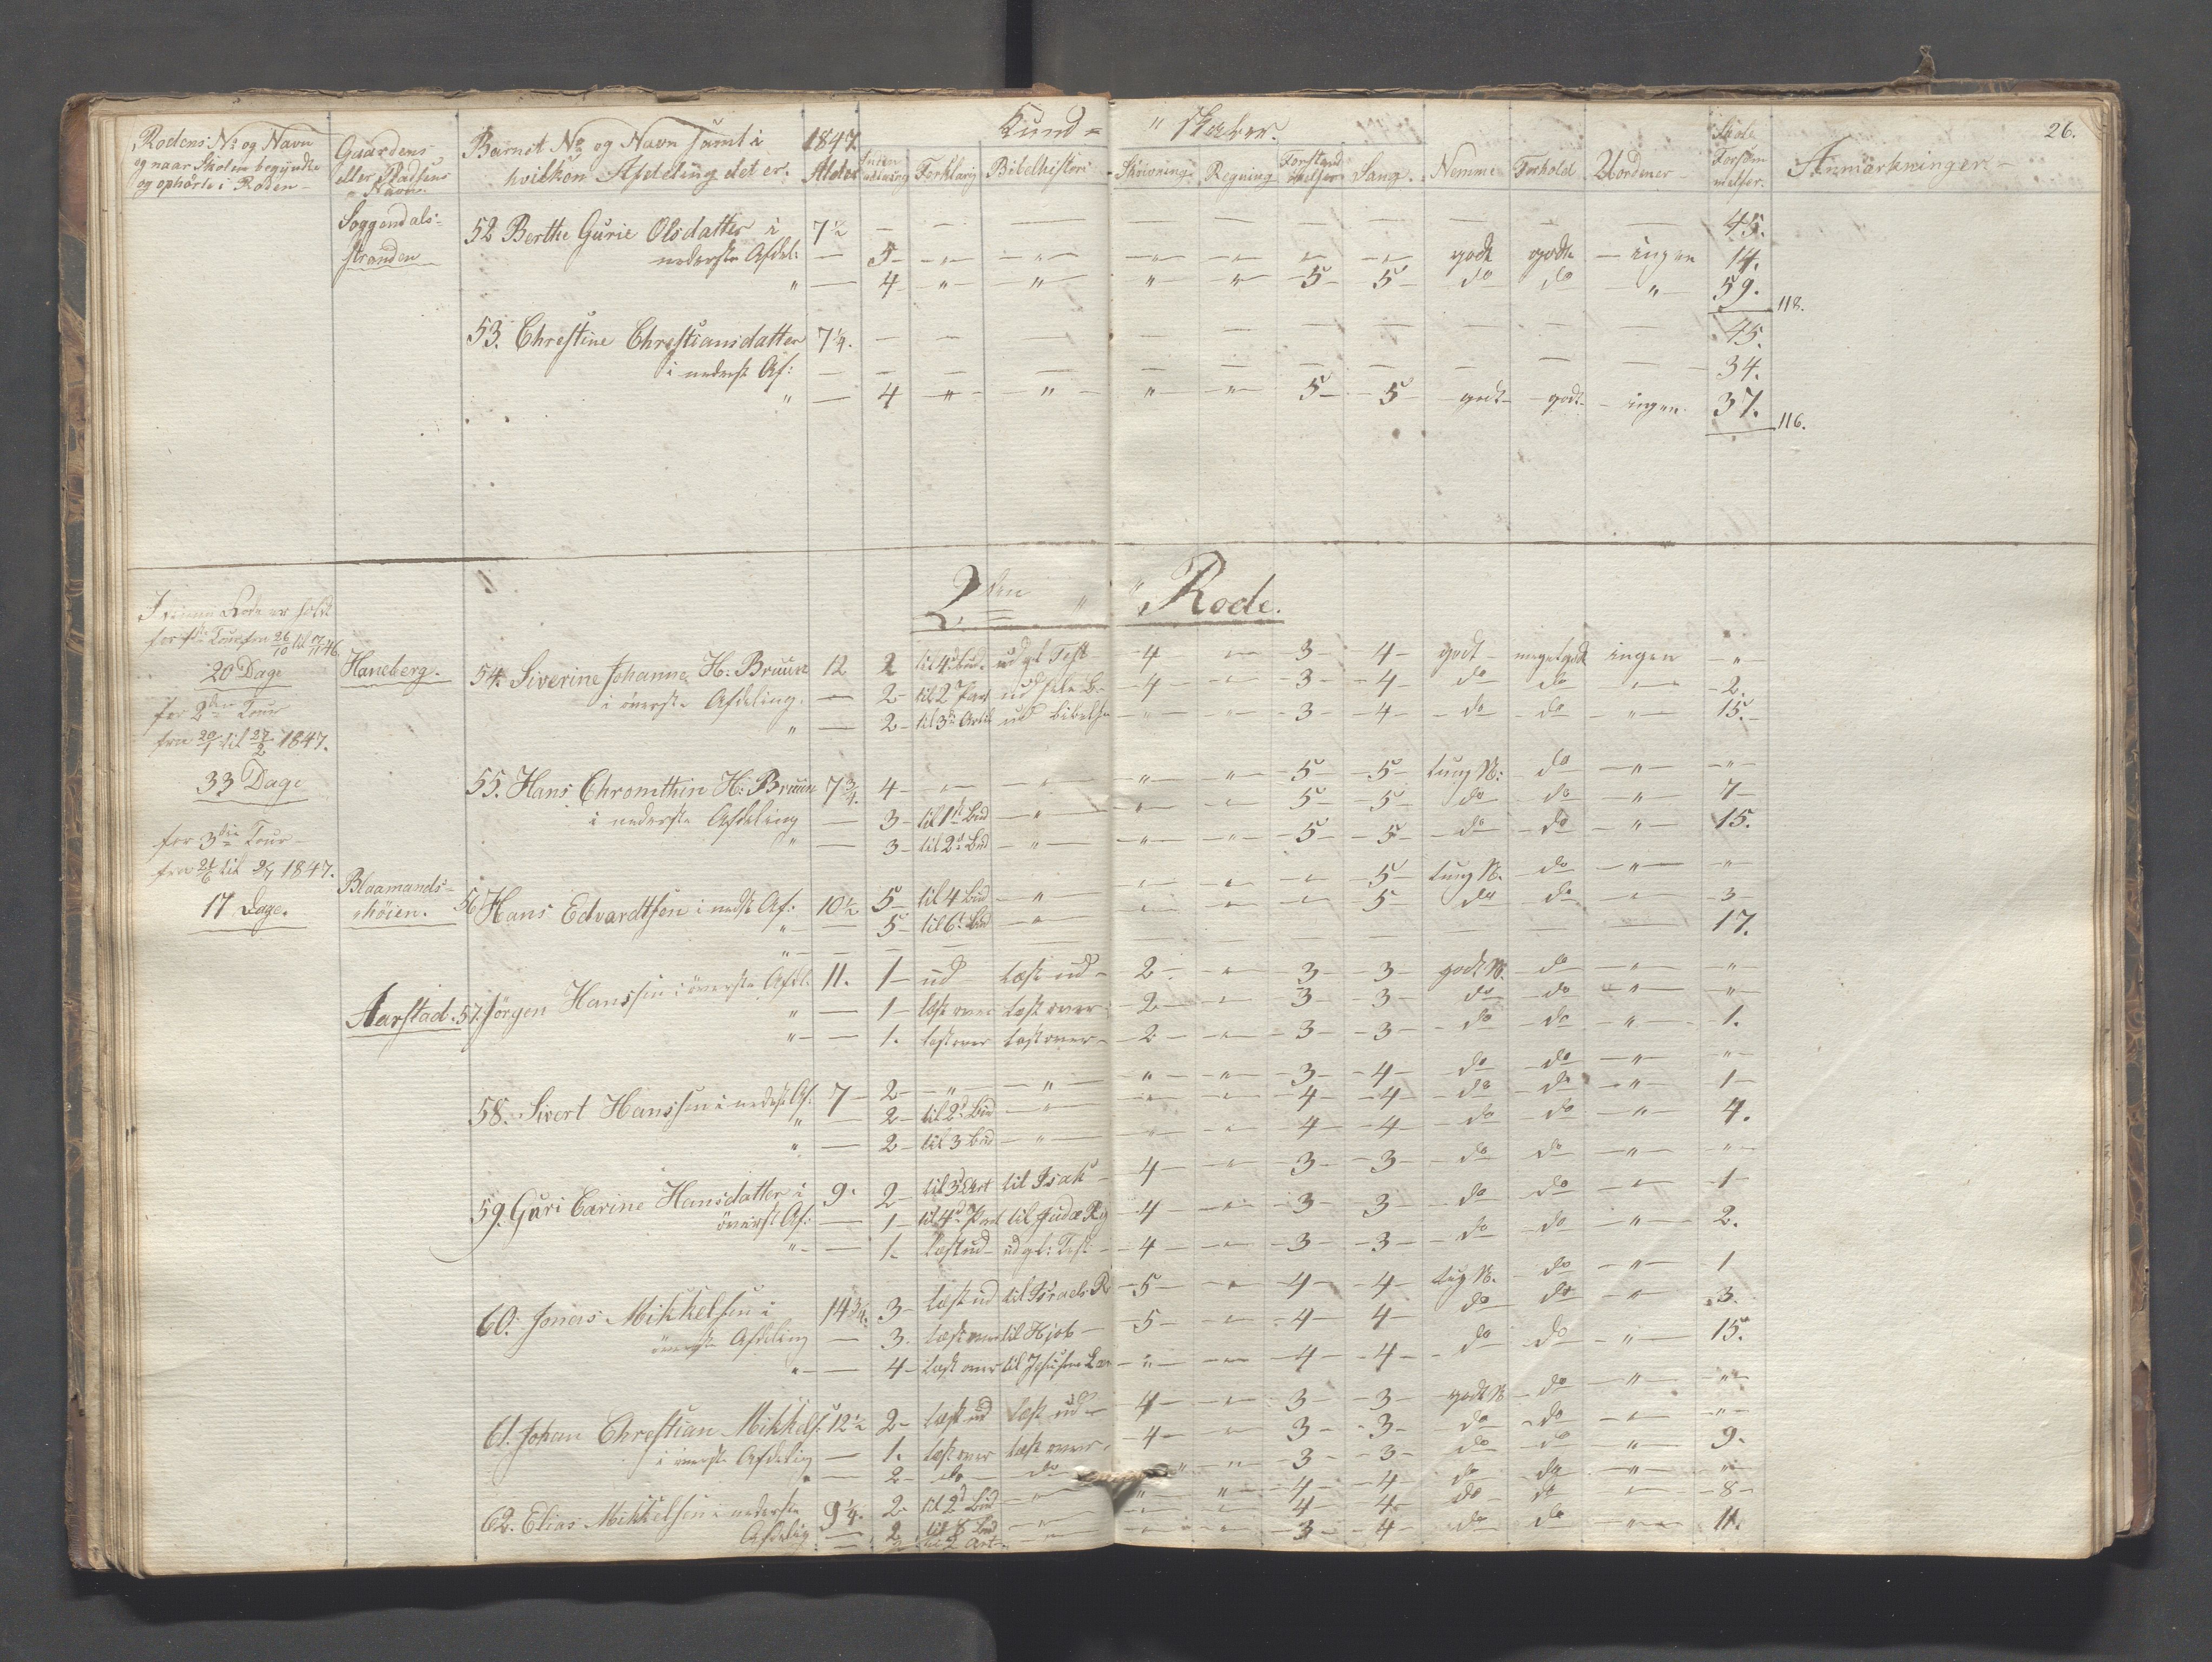 26.
Rodens No og Navn og naar Skolen begyndte og ophørte i Roden
Gaardens eller Pladsens Navn.
Barnets No og Navn samt i hvilken Afdeling det er.
1847. Alder
Kund= "skaber.
Inden udlæsning Forklaring Bibelhistori Skrivning Regning Forstands Øvelser Sang. Nemme Forhold Uordener Skole Forsømmelser. Anmærkninger
Soggendals-
stranden
52 Berthe Gurie Olsdatter i 7½ — — — — — — — — — — 45.
nederste Afdel: — 5 — " — " — " — " — " — " godt godt ingen 14.
" — 4 — " — " — " — " — 5 — 5 — do do — " — 59.
118.
53. Chrestine Chrestiansdatter 7¼. — — — — — — — — — — 45.
i nederst Af: — — — — — — — — — — — 34.
" — 4 — " — " — " — " — 5 — 5 — godt godt ingen 37.
116.
2den " " Rode.
I denne Rode er holdt
for 1ste Tour fra 26/10 til 17/11 46
20 Dage
for 2den Tour
fra 20/1 til 27/2 1847.
33 Dage
for 3die Tour
fra 21/6 til 9/7 1847.
17 Dage.
Haneberg.
54. Siverine Johanne H: Bruun 12 2 til 4d Bud. ud gl Test — 4 — " — 3 — 4 — godt meget godt ingen — " —
i øverste Afdeling. — 2 — til 2 Part ud hele B. — 4 — " — 3 — 4 — do do " — 2.
" — 2 — til 3d Artil ud bibelhs — " — " — 3 — 4 — do — do — " — 15.
55. Hans Chromthin H: Bruun 7¾. 4 — " — " — " — " — 5 — 5 — tung N: do — " — "
i nederste Afdeling — 3 — til 1st Bud — " — " — " 5 — 5 — do — do — " — 7 —
" — 3 — til 2d Bud — " — " — " — 5 — 5 — do — do — " — 15.
Blaamands-
høien.
56. Hans Edvardtsen i nedst Af: 10½ 5 — til 4 Bud — " — " — " — " — 5 — tung N. do — " — "
" — 5 — til 6t Bud — " — " — " — " 5 do do — " — 3 —
" — — — — — — — — — — — 17.
Aarstad.
57. Jørgen Hanssen i øverste Afdl. 11. 1 — ud — læst ud — 2 — " — 3 — 3 — godt N. do — " — "
" — 1 — læst over læst over 2 — " — 3 — 3 — do do — " — "
" — 1. læst over læst over — 2 — " — 3 — 3 — do — do — " — 1.
58. Sivert Hanssen i nedst Af. 7 — 2 — " — " — " — " — 3 — 4 — do do — " — "
" — 2 — til 2d Bud — " — " — " — 4 — 4 — do — do — " — 1 —
" — 2 — til 3 bud — " — " — " — 4 — 4 — do do — " — 4.
59. Guri Carine Hansdatter i 9. 2 — til 3d Art til Isak — 4 — " — 3 — 3 — do do — " — "
øverst Af: — 1 — til 4d Part til Judæ Rg — 4 — " — 3 — 3 — do do — " — 1 —
" — 1. læst ud — ud gl: Test — 4 — " — 3 — 3 — do do — " — 2.
60. Jonas Mikkelsen i 14¾. 3 — læst ud til Israels R — 5 — " — 4 — 4 — tug N. do — " — 1
øverste Afdeling — 3. læst over til Hjob — 5 — " — 4 — 4 — do do — " — 3.
" — 4 — læst over til Jesu — " — " — 4 — 4 — do do — " — 15.
61. Johan Chrestian Mikkels: 12½ 2 — læst ud læst ud — 4 — " — 3 — 3 — godt N do — " — "
i øverste Afdeling — 1. læst over læst over. — 4 — " — 3 — 3 — do do — " — "
" — 2 — do — do " — " — 3 — 3 — do do — " — 9.
62. Elias Mikkelsen i nederste 9¼. 2 — til 2d Bud — " — " — " — 4 — 4 — do do — " — "
Afdeling — 2 — til 8 bud — " — " — " — 4 — 4 — do — do — " — 8 —
— 2 — til 2 Art — " — " — " — 3 — 4 — do do — " — 11.